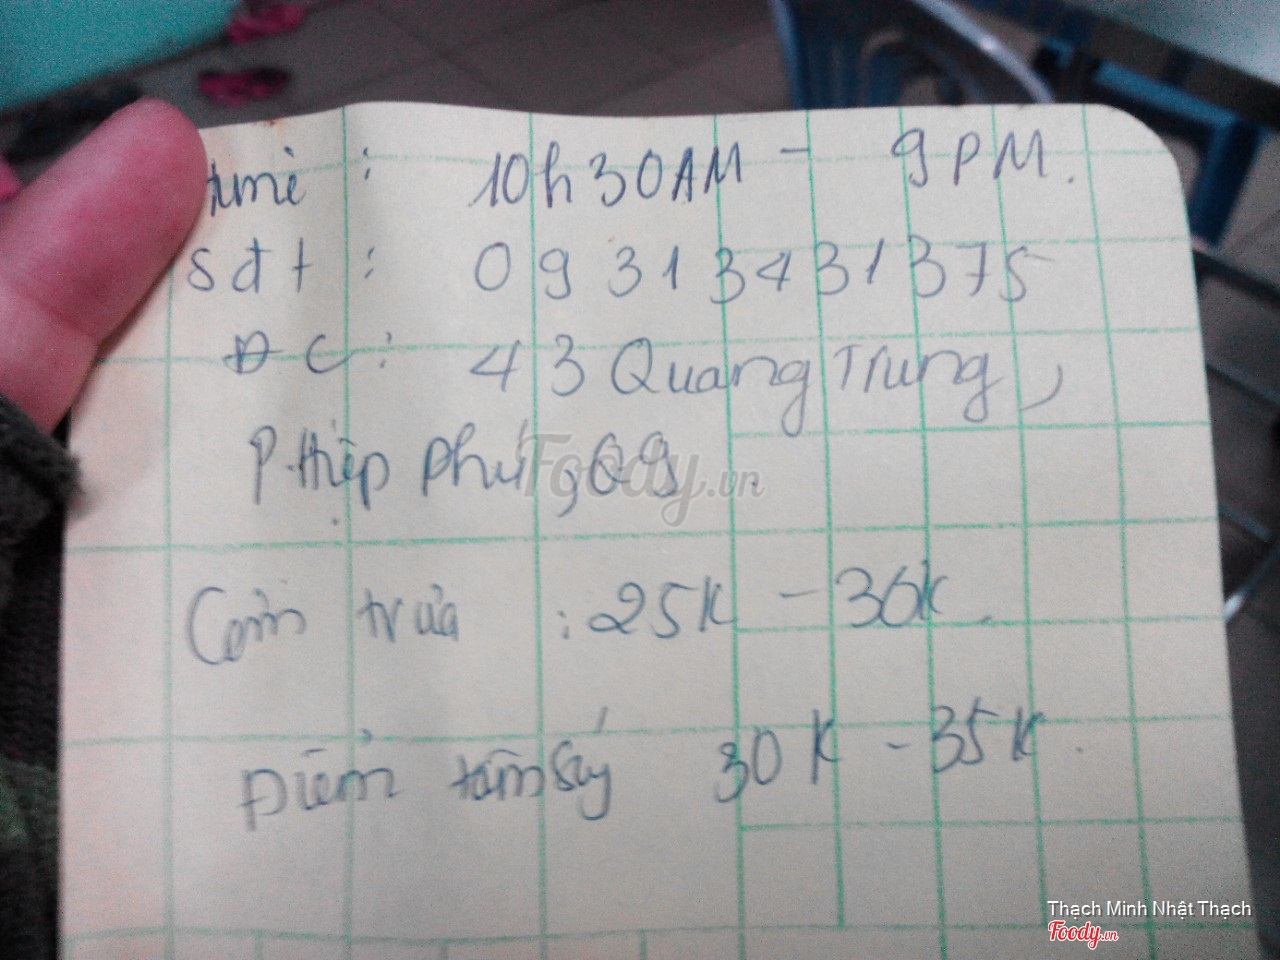 time : 10h30AM - 9PM.
sđt : 09313431375
ĐC : 43 Quang Trung,
P. Hiệp Phú, Q9.
Cơm trưa : 25K - 30K.
Điểm tâm sáng 30K - 35K.
Foody.vn
Thạch Minh Nhật Thạch
Foody.vn